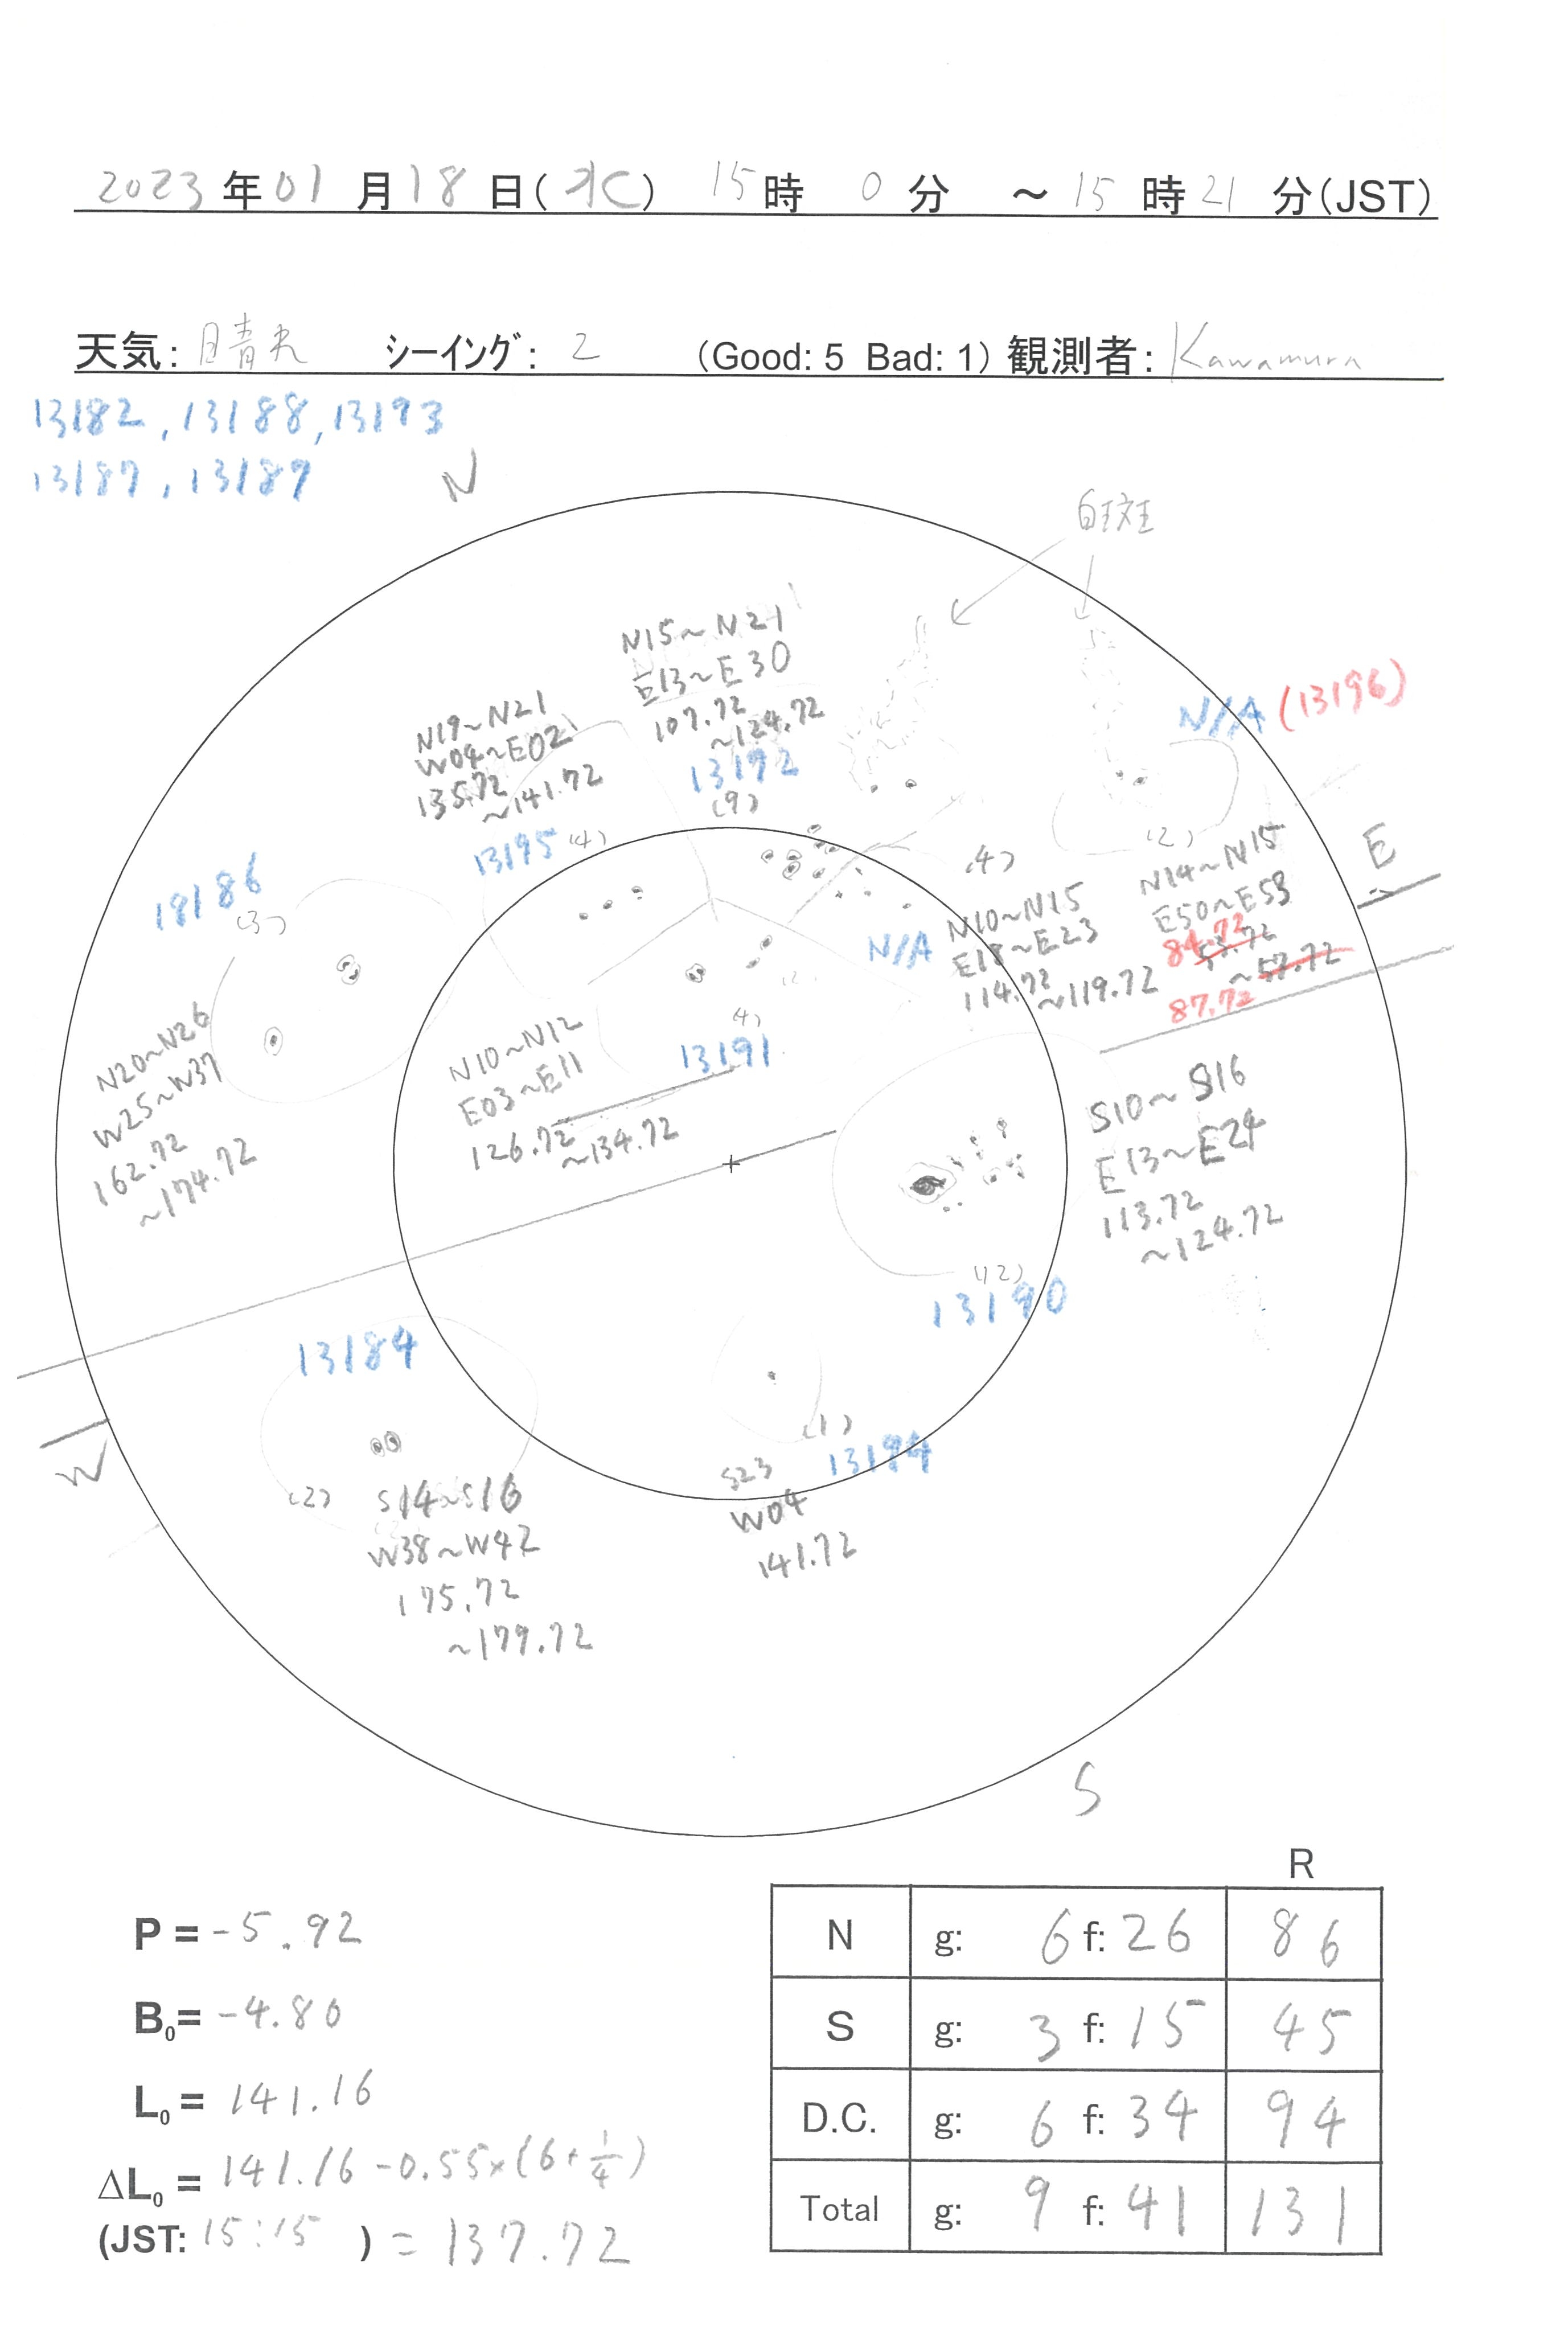 2023年01月18日(水) 15時 0分 ～15時21分(JST)
天気: 晴れ ｼｰｲﾝｸﾞ: 2 (Good: 5 Bad: 1) 観測者: Kawamura
13182, 13188, 13193
13187, 13189
N
白斑
N15~N21
E13~E30
107.72
~124.72
13192
(9)
N/A (13196)
(2)
N14~N15
E50~E53
84.72 53.72
~57.72
87.72
E
N19~N21
W04~E02
135.72
~141.72
13195 (4)
(4)
N/A
N10~N15
E18~E23
114.72
~119.72
13186
(3)
N20~N26
W25~W37
162.72
~174.72
N10~N12
E03~E11
126.72
~134.72
(4)
13191
S10~S16
E13~E24
113.72
~124.72
(12)
13190
13184
(2) S14~S16
W38~W42
175.72
~179.72
W
(1)
13194
S23
W04
141.72
S
P = -5.92
B0= -4.80
L0 = 141.16
ΔL0 = 141.16 -0.55×(6+1/4)
(JST: 15:15 ) = 137.72
R
N g: 6 f: 26 86
S g: 3 f: 15 45
D.C. g: 6 f: 34 94
Total g: 9 f: 41 131